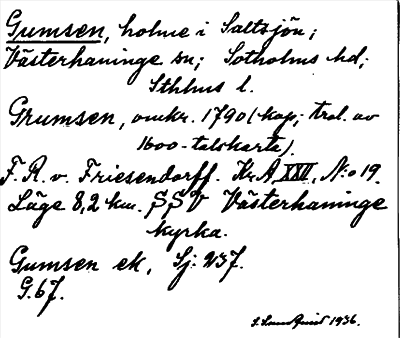 Gumsen, holme i Saltsjön;
Västerhaninge sn; Sotholms hd;
Sthlms l.
Grumsen, omkr. 1790 (kop; trol. av
1600-talskarta).
F. R. v. Friesendorff. Kr. A XXV, N:o 19.
Läge 8,2 km. SSV Västerhaninge
kyrka.
Gumsen ek, Sj: 237.
G. 67.
1936.